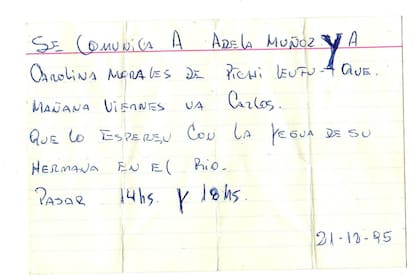 SE COMUNICA A ADELA MUÑOZ Y A
CAROLINA MORALES DE PICHI LEUFU - QUE.
MAÑANA VIERNES VA CARLOS.
QUE LO ESPEREN CON LA YEGUA DE SU
HERMANA EN EL RIO.
PASAR 14hs. Y 18hs.
21-12-95